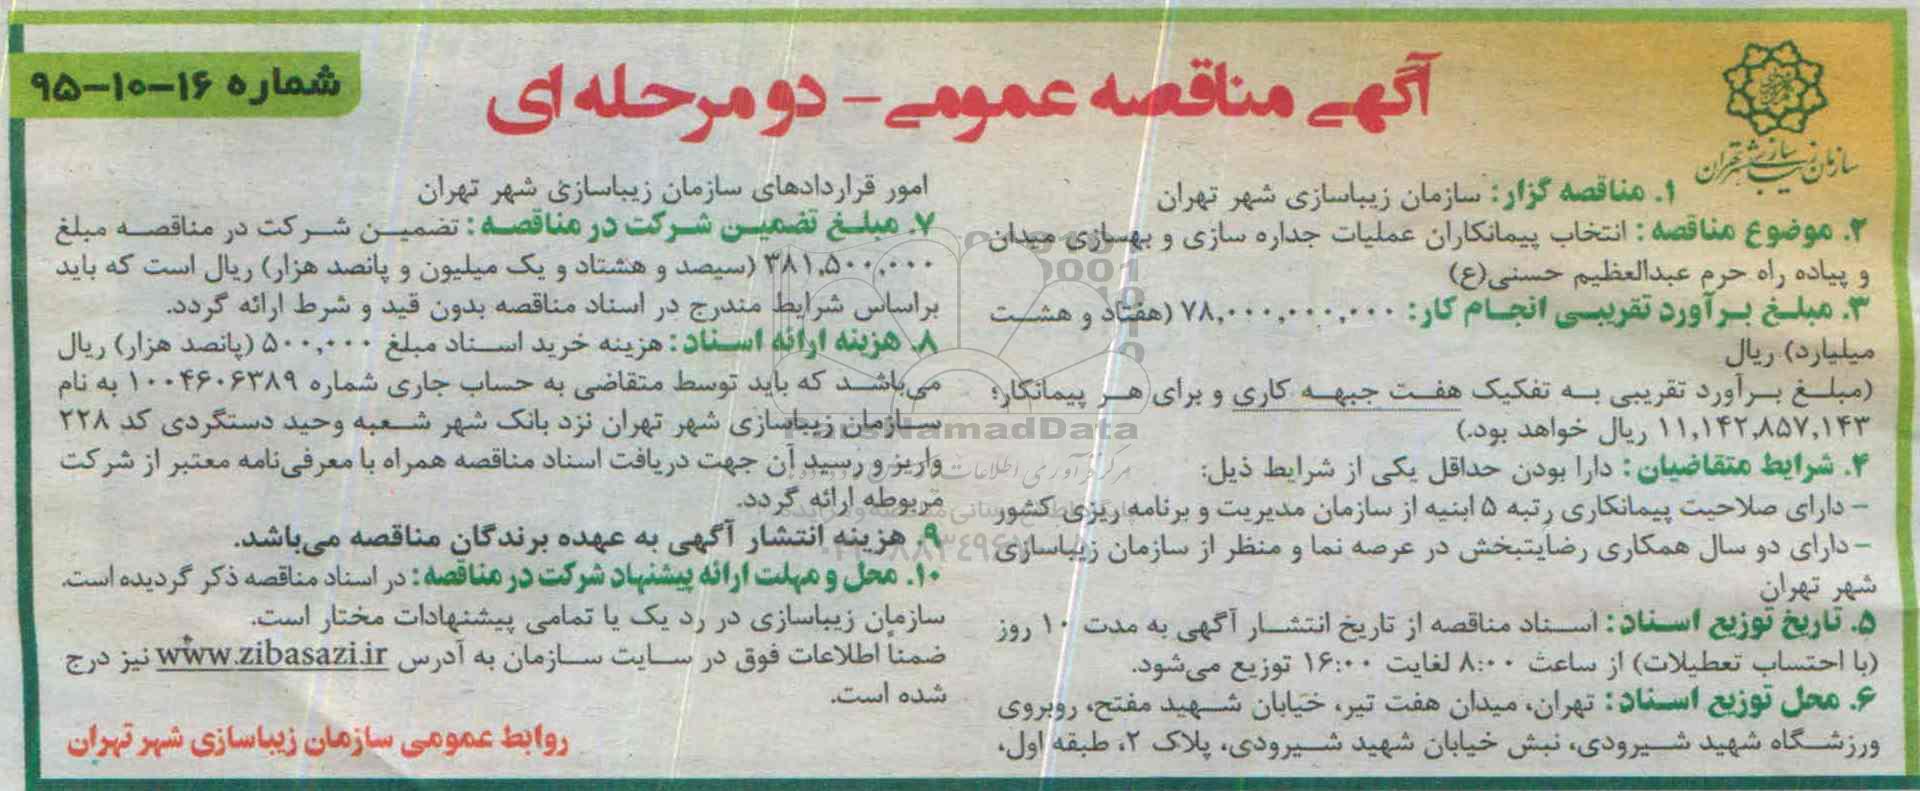 آگهی مناقصه عمومی - دو مرحله ای
شماره ۱۶-۱۰-۹۵
سازمان زیباسازی شهر تهران
۱. مناقصه گزار: سازمان زیباسازی شهر تهران
۲. موضوع مناقصه: انتخاب پیمانکاران عملیات جداره سازی و بهسازی میدان
و پیاده راه حرم عبدالعظیم حسنی(ع)
۳. مبلغ برآورد تقریبی انجام کار: ۷۸,۰۰۰,۰۰۰,۰۰۰ (هفتاد و هشت
میلیارد) ریال
(مبلغ برآورد تقریبی به تفکیک هفت جبهه کاری و برای هر پیمانکار؛
۱۱,۱۴۲,۸۵۷,۱۴۳ ریال خواهد بود.)
۴. شرایط متقاضیان: دارا بودن حداقل یکی از شرایط ذیل:
- دارای صلاحیت پیمانکاری رتبه ۵ ابنیه از سازمان مدیریت و برنامه ریزی کشور
- دارای دو سال همکاری رضایتبخش در عرصه نما و منظر از سازمان زیباسازی
شهر تهران
۵. تاریخ توزیع اسناد: اسناد مناقصه از تاریخ انتشار آگهی به مدت ۱۰ روز
(با احتساب تعطیلات) از ساعت ۸:۰۰ لغایت ۱۶:۰۰ توزیع می‌شود.
۶. محل توزیع اسناد: تهران، میدان هفت تیر، خیابان شهید مفتح، روبروی
ورزشگاه شهید شیرودی، نبش خیابان شهید شیرودی، پلاک ۲، طبقه اول،
امور قراردادهای سازمان زیباسازی شهر تهران
۷. مبلغ تضمین شرکت در مناقصه: تضمین شرکت در مناقصه مبلغ
۳۸۱,۵۰۰,۰۰۰ (سیصد و هشتاد و یک میلیون و پانصد هزار) ریال است که باید
براساس شرایط مندرج در اسناد مناقصه بدون قید و شرط ارائه گردد.
۸. هزینه ارائه اسناد: هزینه خرید اسناد مبلغ ۵۰۰,۰۰۰ (پانصد هزار) ریال
می‌باشد که باید توسط متقاضی به حساب جاری شماره ۱۰۰۴۶۰۶۳۸۹ به نام
سازمان زیباسازی شهر تهران نزد بانک شهر شعبه وحید دستگردی کد ۲۲۸
واریز و رسید آن جهت دریافت اسناد مناقصه همراه با معرفی‌نامه معتبر از شرکت
مربوطه ارائه گردد.
۹. هزینه انتشار آگهی به عهده برندگان مناقصه می‌باشد.
۱۰. محل و مهلت ارائه پیشنهاد شرکت در مناقصه: در اسناد مناقصه ذکر گردیده است.
سازمان زیباسازی در رد یک یا تمامی پیشنهادات مختار است.
ضمناً اطلاعات فوق در سایت سازمان به آدرس www.zibasazi.ir نیز درج
شده است.
روابط عمومی سازمان زیباسازی شهر تهران
ParsNamadData